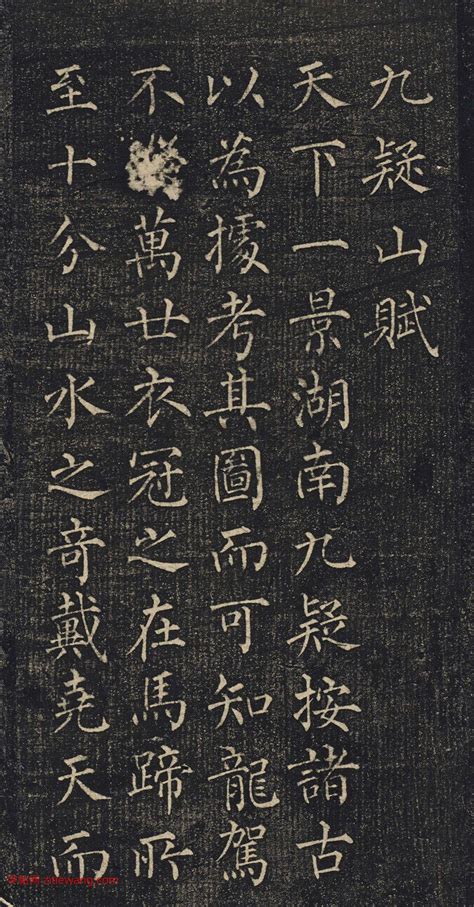 九疑山賦
天下一景湖南九疑按諸古
以為據考其圖而可知龍駕
不萬廿衣冠之在馬蹄所
至十分山水之奇戴堯天而